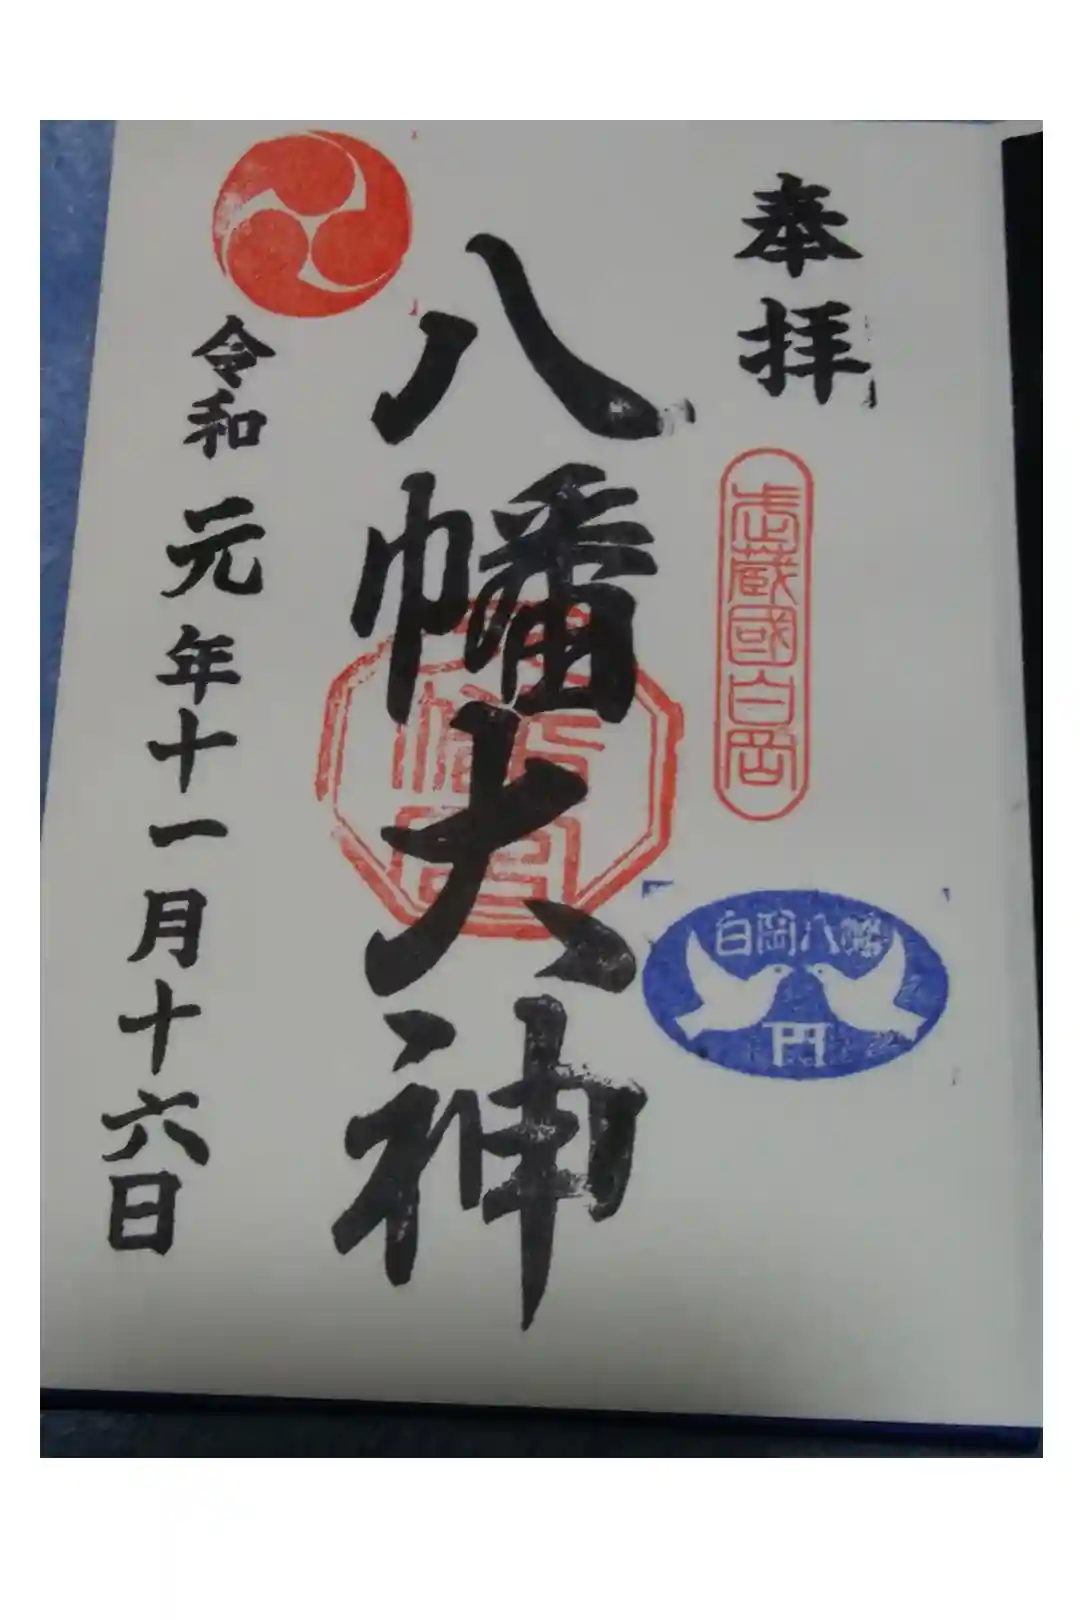 奉拝
武蔵國白岡
白岡八幡
八幡大神
令和元年十一月十六日